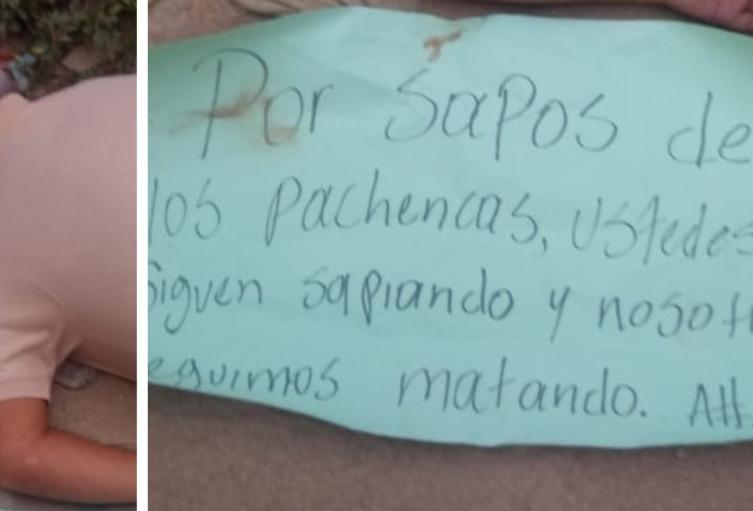 Por sapos de
los pachencas, ustedes
siguen sapiando y nosotr
eguimos matando. Att.